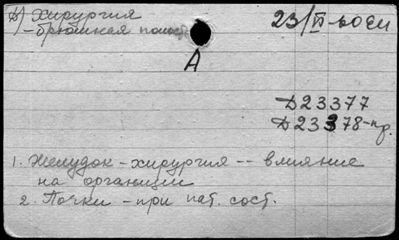 Б) Хирургия
23/II-60 ЕМ
-брюшная полост
А
Д23377
Д23378-пр.
1. Желудок - хирургия -- влияние
на организм
2. Почки - при пат. сост.